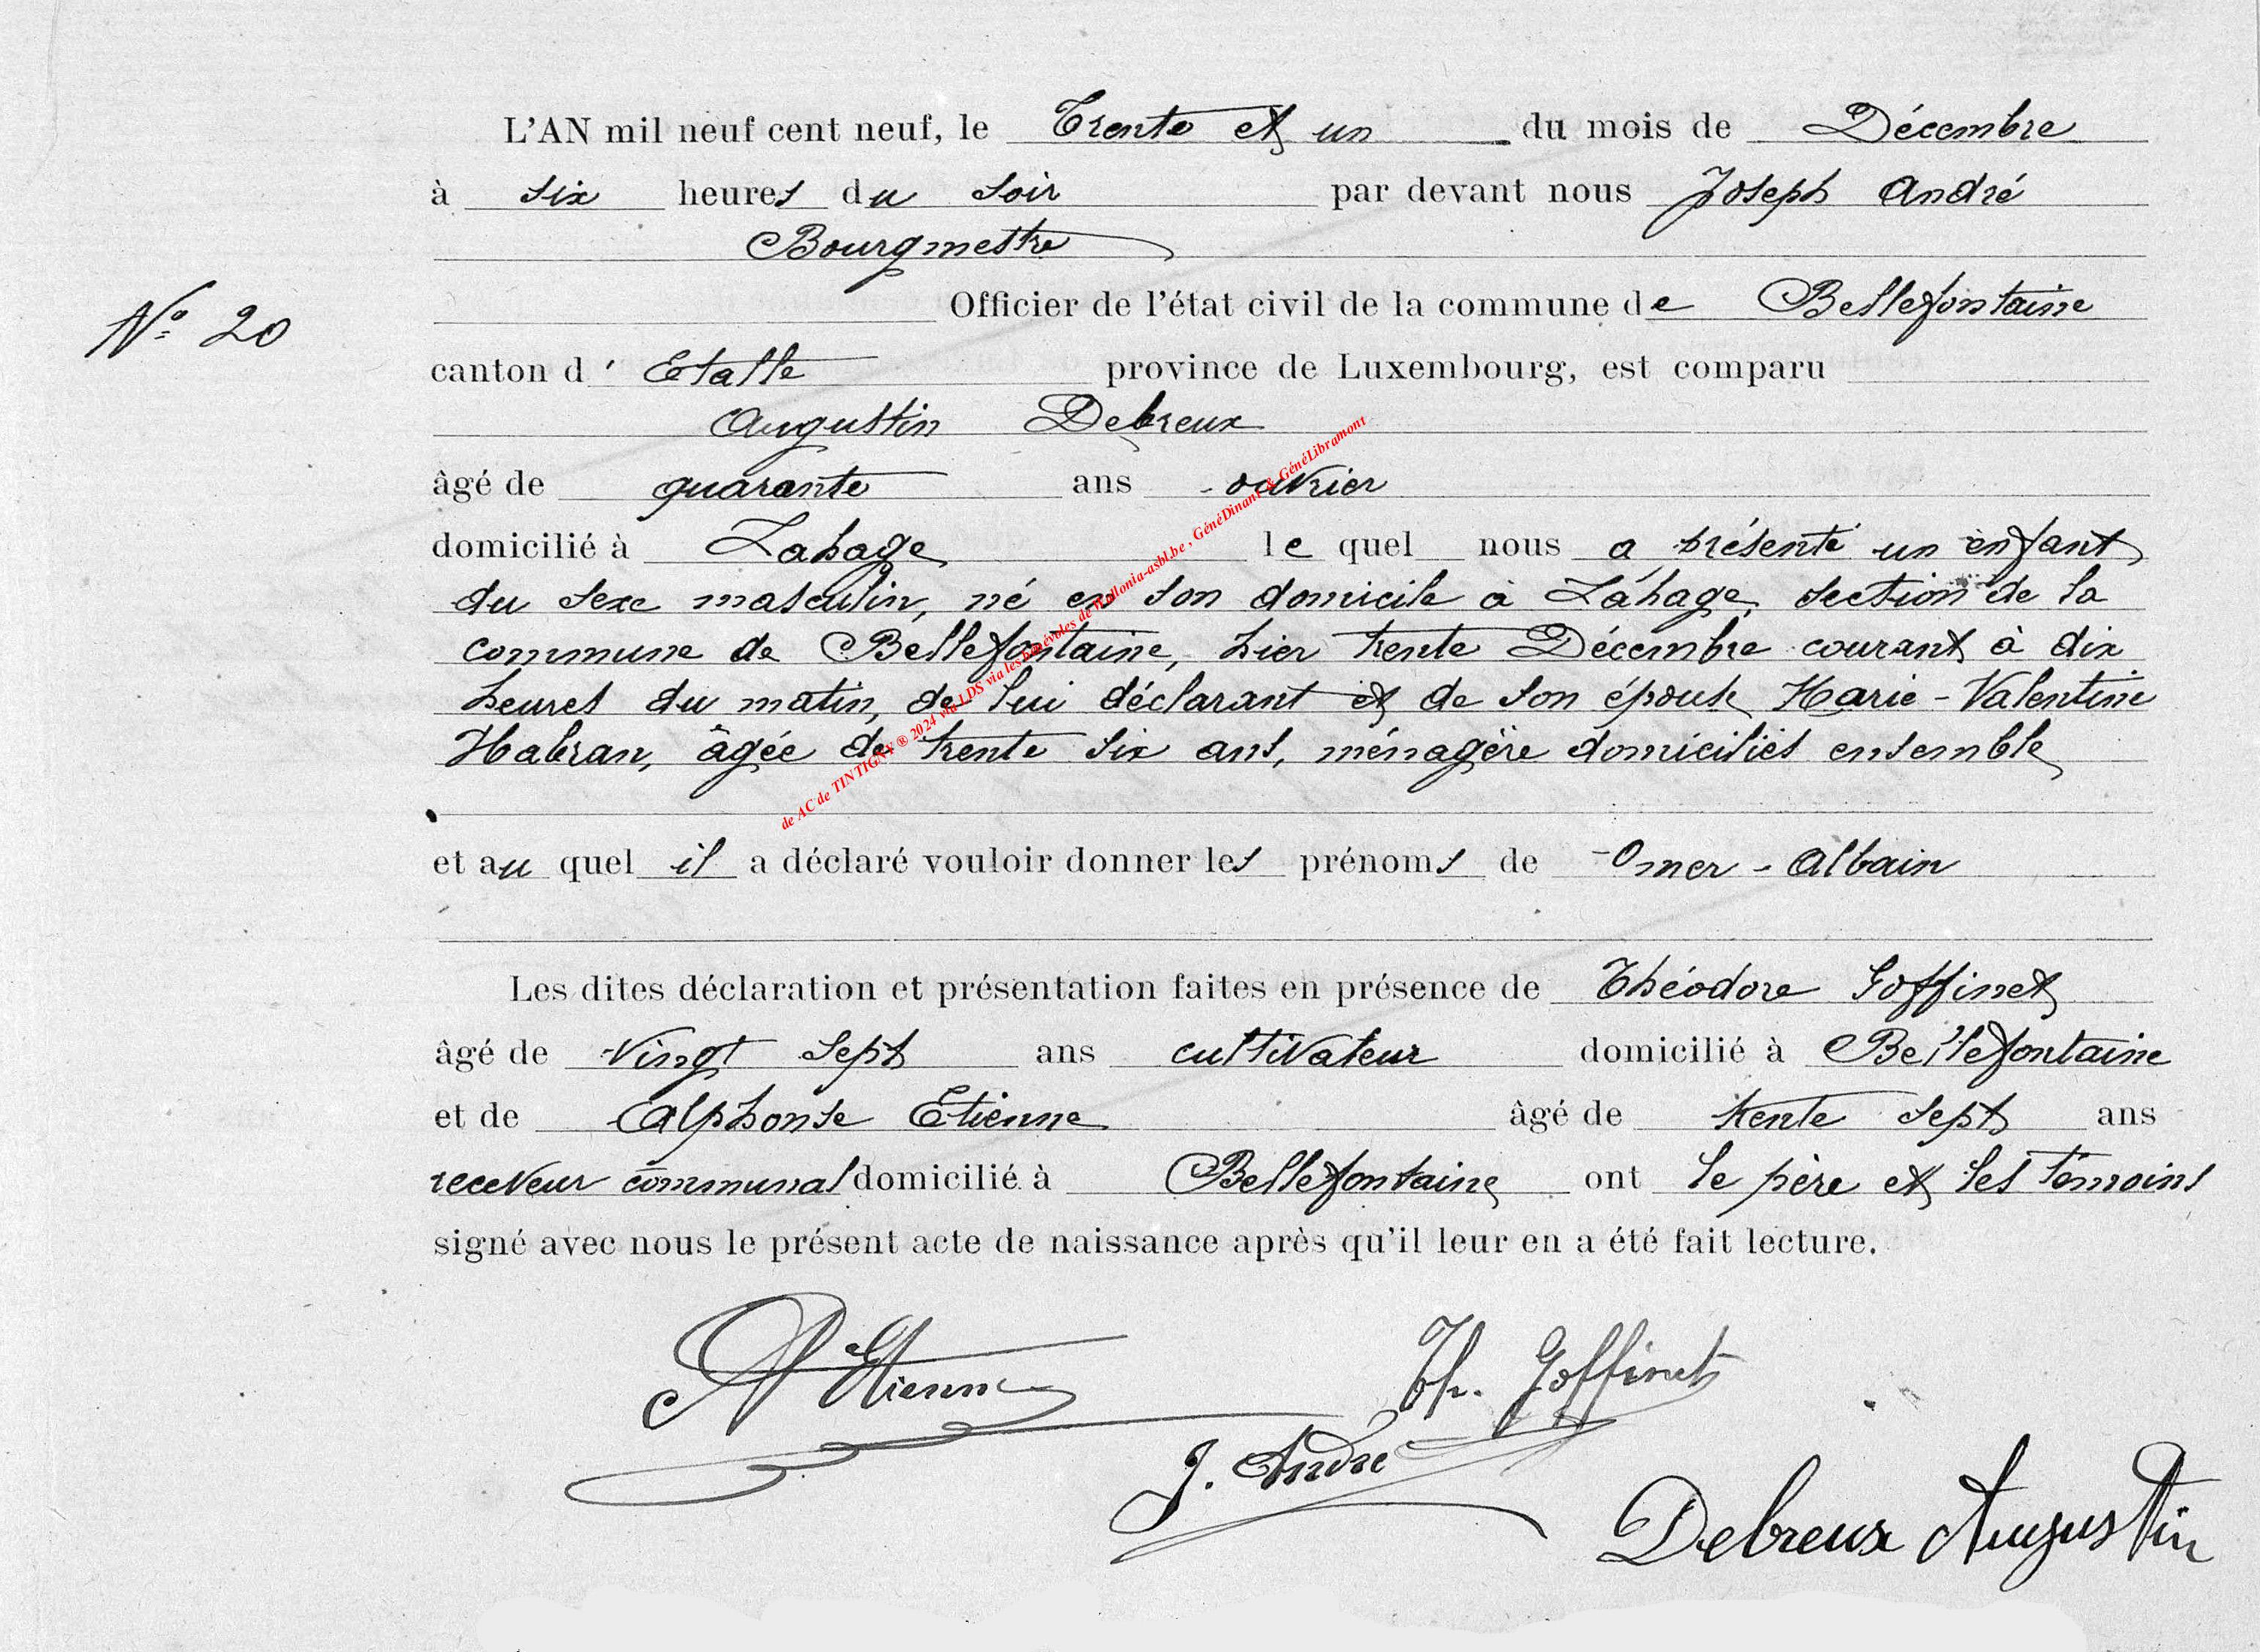 L'AN mil neuf cent neuf, le Trente et un du mois de Décembre
à six heures du soir par devant nous Joseph André
Bourgmestre
Officier de l'état civil de la commune de Bellefontaine
N° 20
canton d' Etalle province de Luxembourg, est comparu
Augustin Debreux
âgé de quarante ans ouvrier
domicilié à Lahage le quel nous a présenté un enfant
du sexe masculin, né en son domicile à Lahage, section de la
commune de Bellefontaine, hier trente Décembre courant à dix
heures du matin, de lui déclarant et de son épouse Marie-Valentine
Habran, âgée de trente six ans, ménagère domiciliés ensemble
de AC de TINTIGNY ® 2024 via LDS via les bénévoles de Wallonia-asbl.be , GénéDinant & GénéLibramont
et au quel il a déclaré vouloir donner les prénoms de Omer - Albain
Les dites déclaration et présentation faites en présence de Théodore Goffinet
âgé de vingt sept ans cultivateur domicilié à Bellefontaine
et de Alphonse Etienne âgé de trente sept ans
receveur communal domicilié à Bellefontaine ont le père et les témoins
signé avec nous le présent acte de naissance après qu'il leur en a été fait lecture.
A Etienne Th. Goffinet
J. André
Debreux Augustin